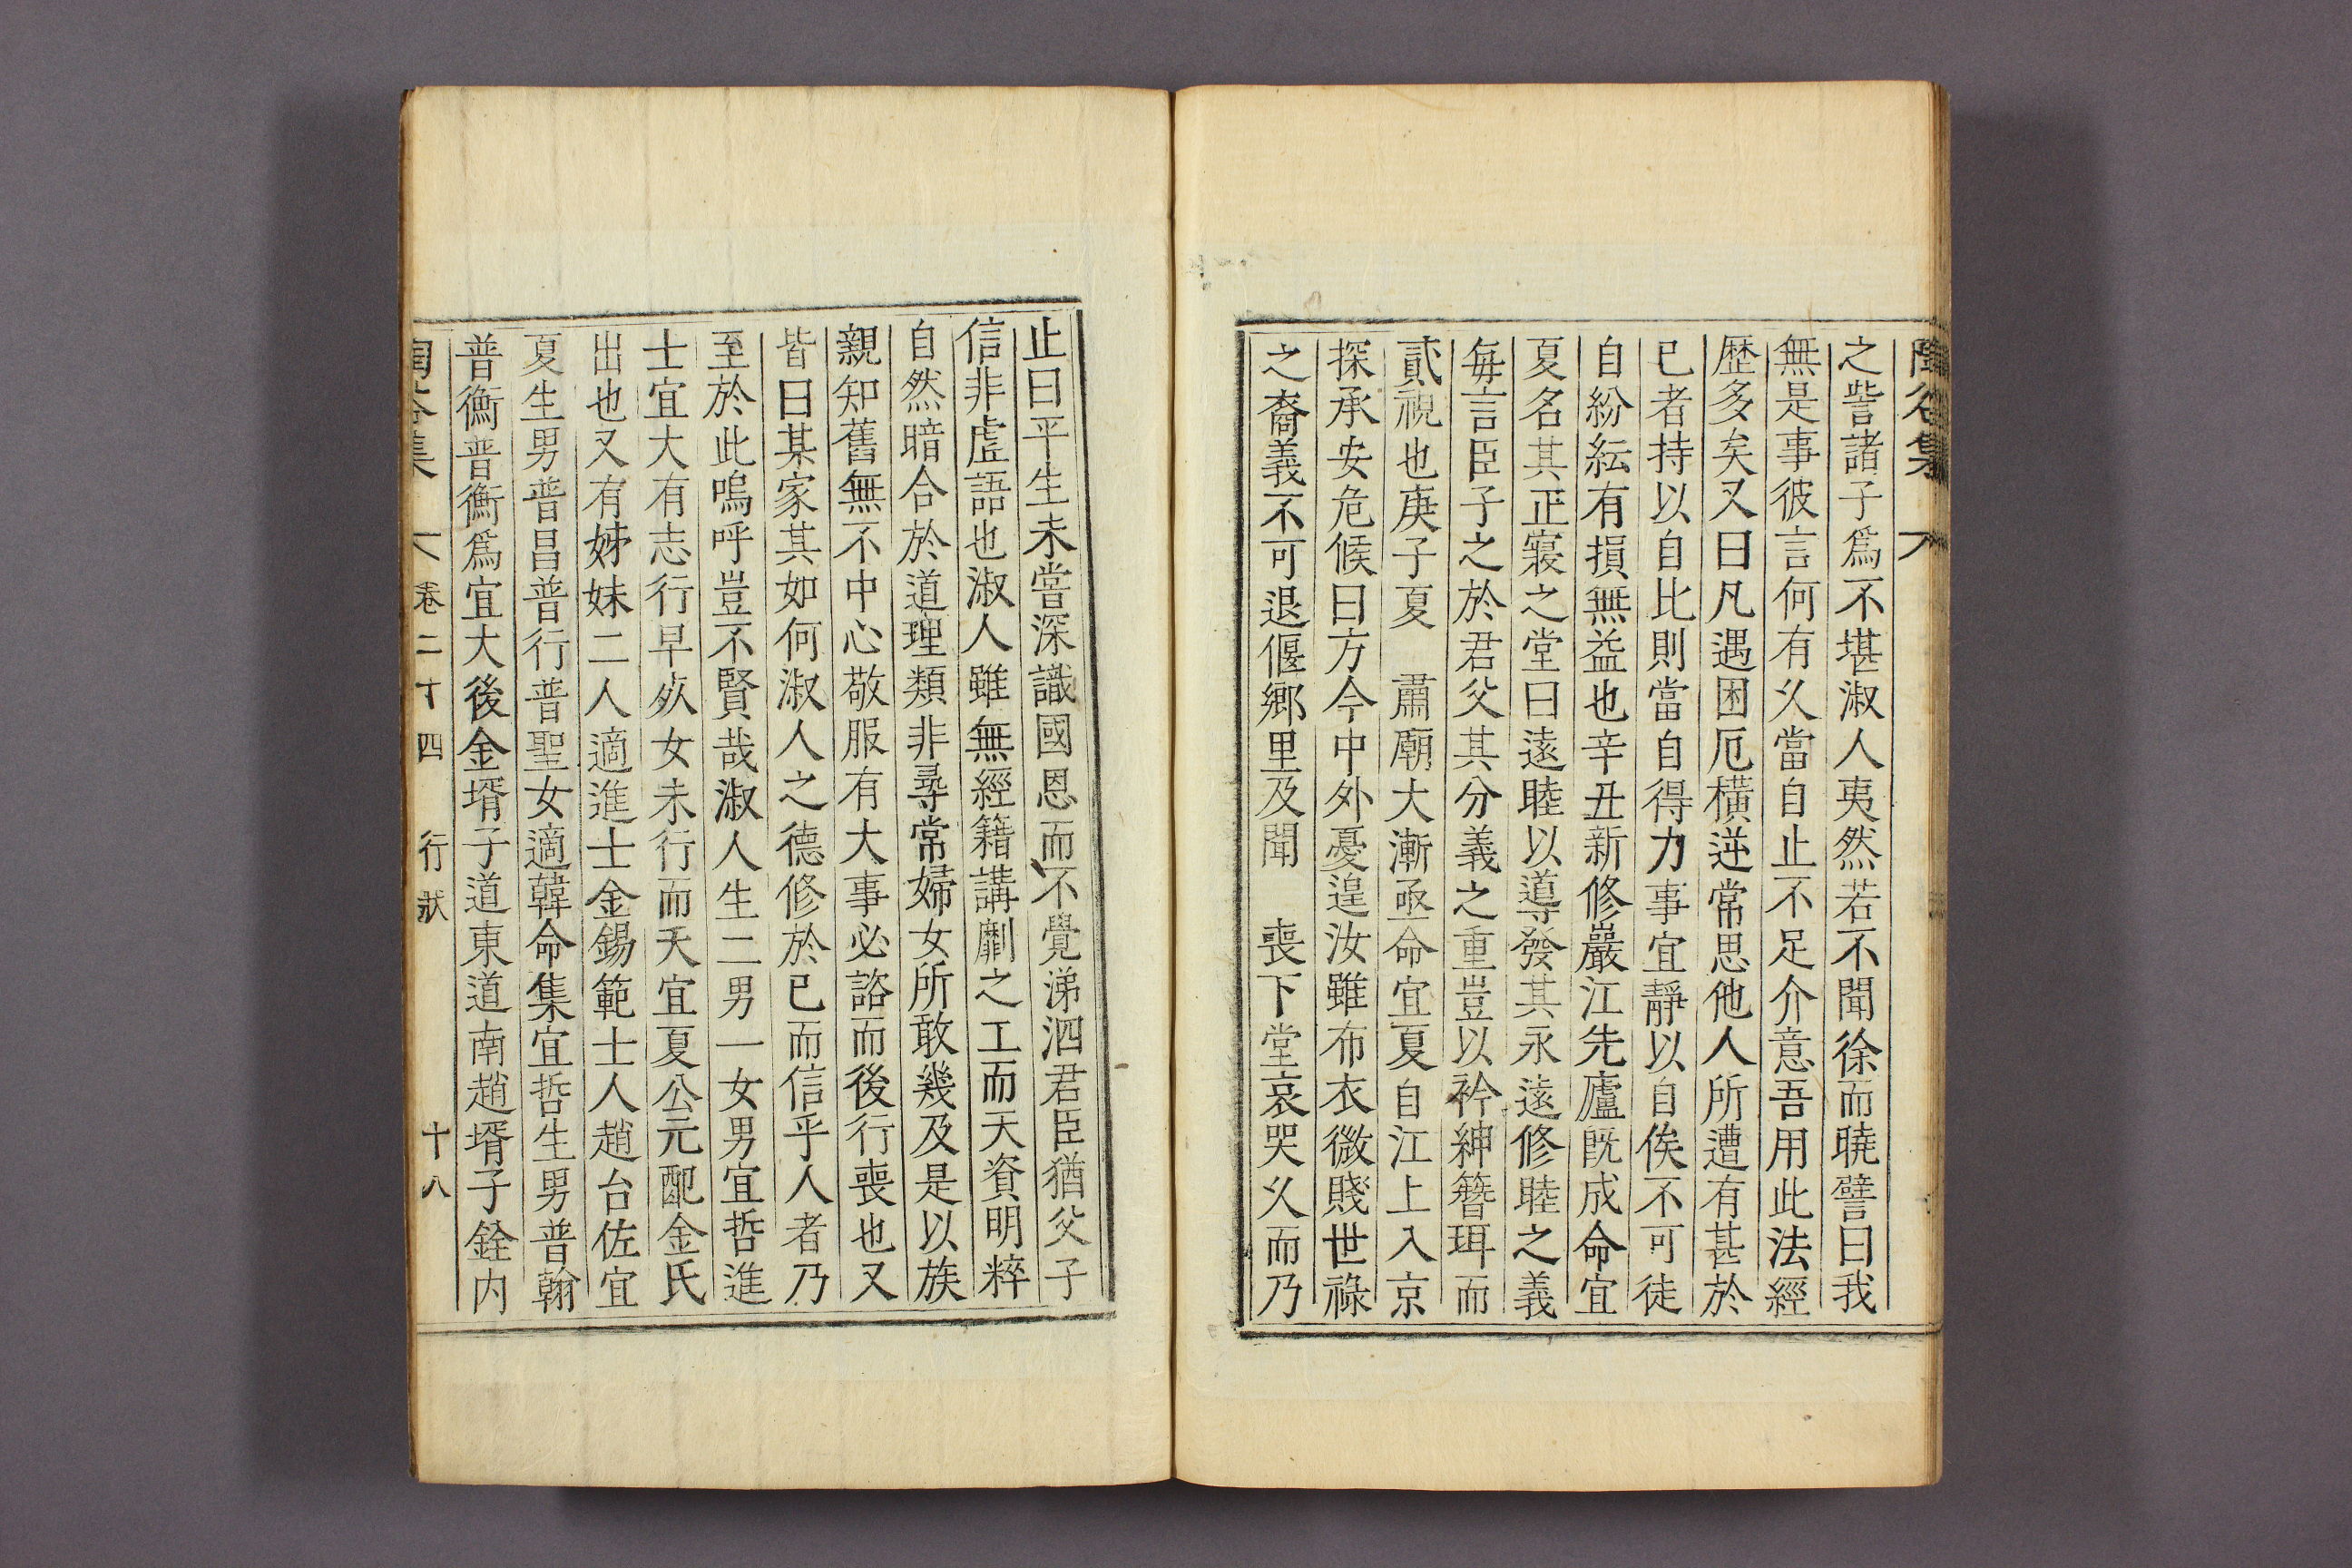 陶谷集
之訾諸子爲不堪淑人夷然若不聞徐而曉譬曰我
無是事彼言何有久當自止不足介意吾用此法經
歷多矣又曰凡遇困厄橫逆常思他人所遭有甚於
已者持以自比則當自得力事宜靜以自俟不可徒
自紛紜有損無益也辛丑新修巖江先廬旣成命宜
夏名其正寢之堂曰遠睦以導發其永遠修睦之義
每言臣子之於君父其分義之重豈以衿紳簪珥而
貳視也庚子夏　肅廟大漸亟命宜夏自江上入京
探承安危候曰方今中外憂遑汝雖布衣微賤世祿
之裔義不可退偃鄕里及聞　喪下堂哀哭久而乃
止曰平生未嘗深識國恩而不覺涕泗君臣猶父子
信非虛語也淑人雖無經籍講劘之工而天資明粹
自然暗合於道理類非尋常婦女所敢幾及是以族
親知舊無不中心敬服有大事必諮而後行喪也又
皆曰某家其如何淑人之德修於已而信乎人者乃
至於此嗚呼豈不賢哉淑人生二男一女男宜哲進
士宜大有志行早歿女未行而夭宜夏公元配金氏
出也又有姊妹二人適進士金錫範士人趙台佐宜
夏生男普昌普行普聖女適韓命集宜哲生男普翰
普衡普衡爲宜大後金壻子道東道南趙壻子銓内
陶谷集　卷二十四　行狀　十八